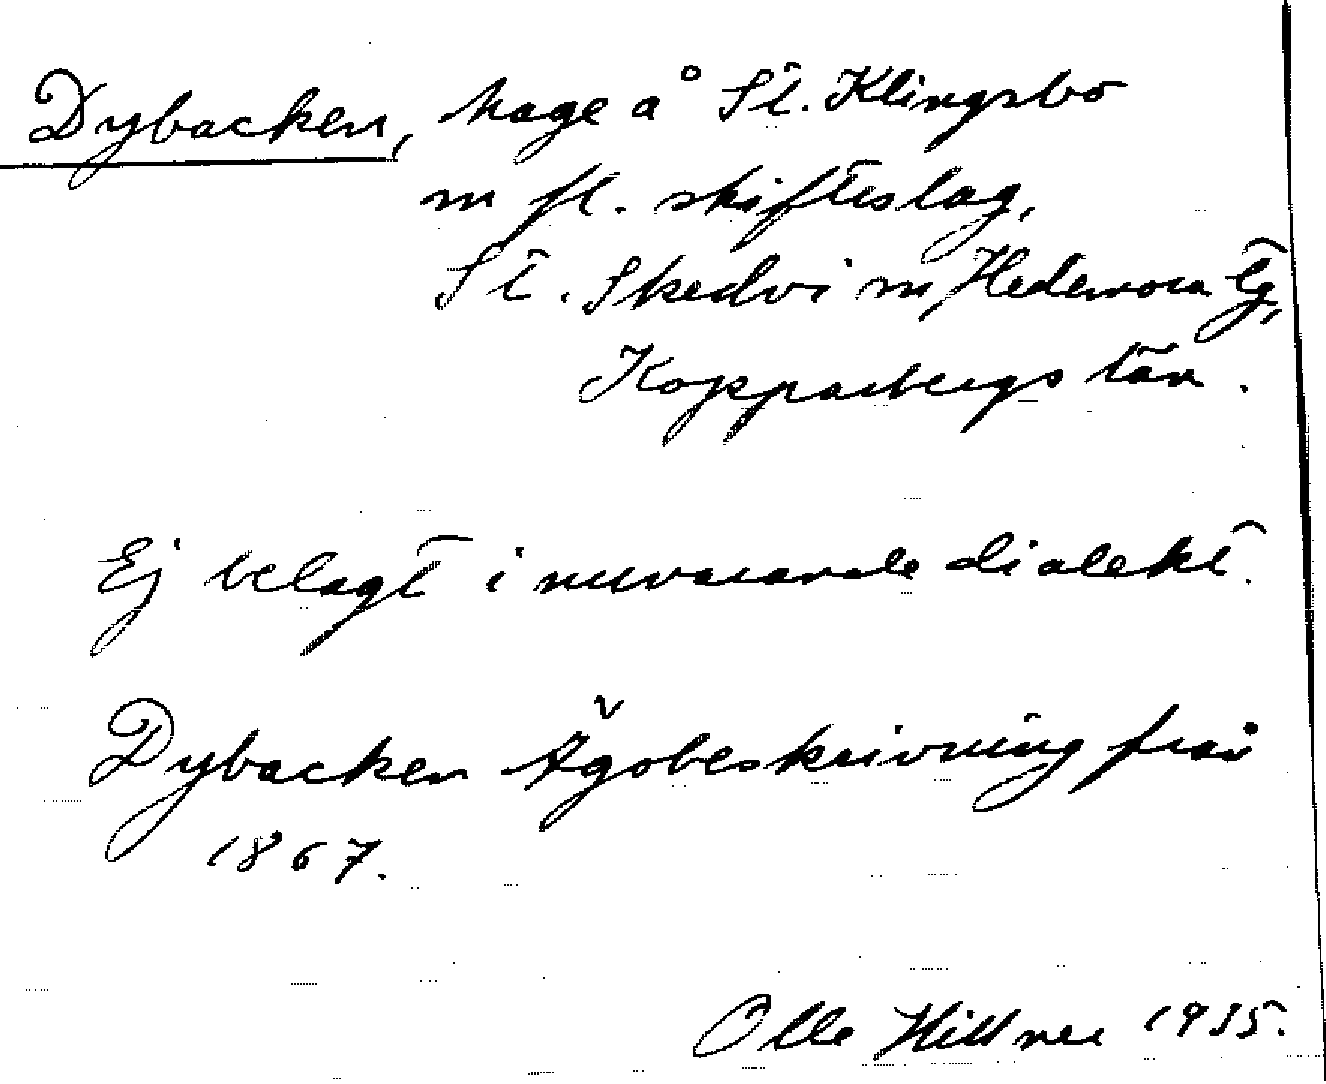 Dybacken, hage å St. Klingsbo
m fl. skifteslag,
St. Skedvi m Hedemora tg,
Kopparbergs län.
Ej belagt i nuvarande dialekt.
Dybacken Ägobeskrivning från
1867.
Olle Hillner 1935.